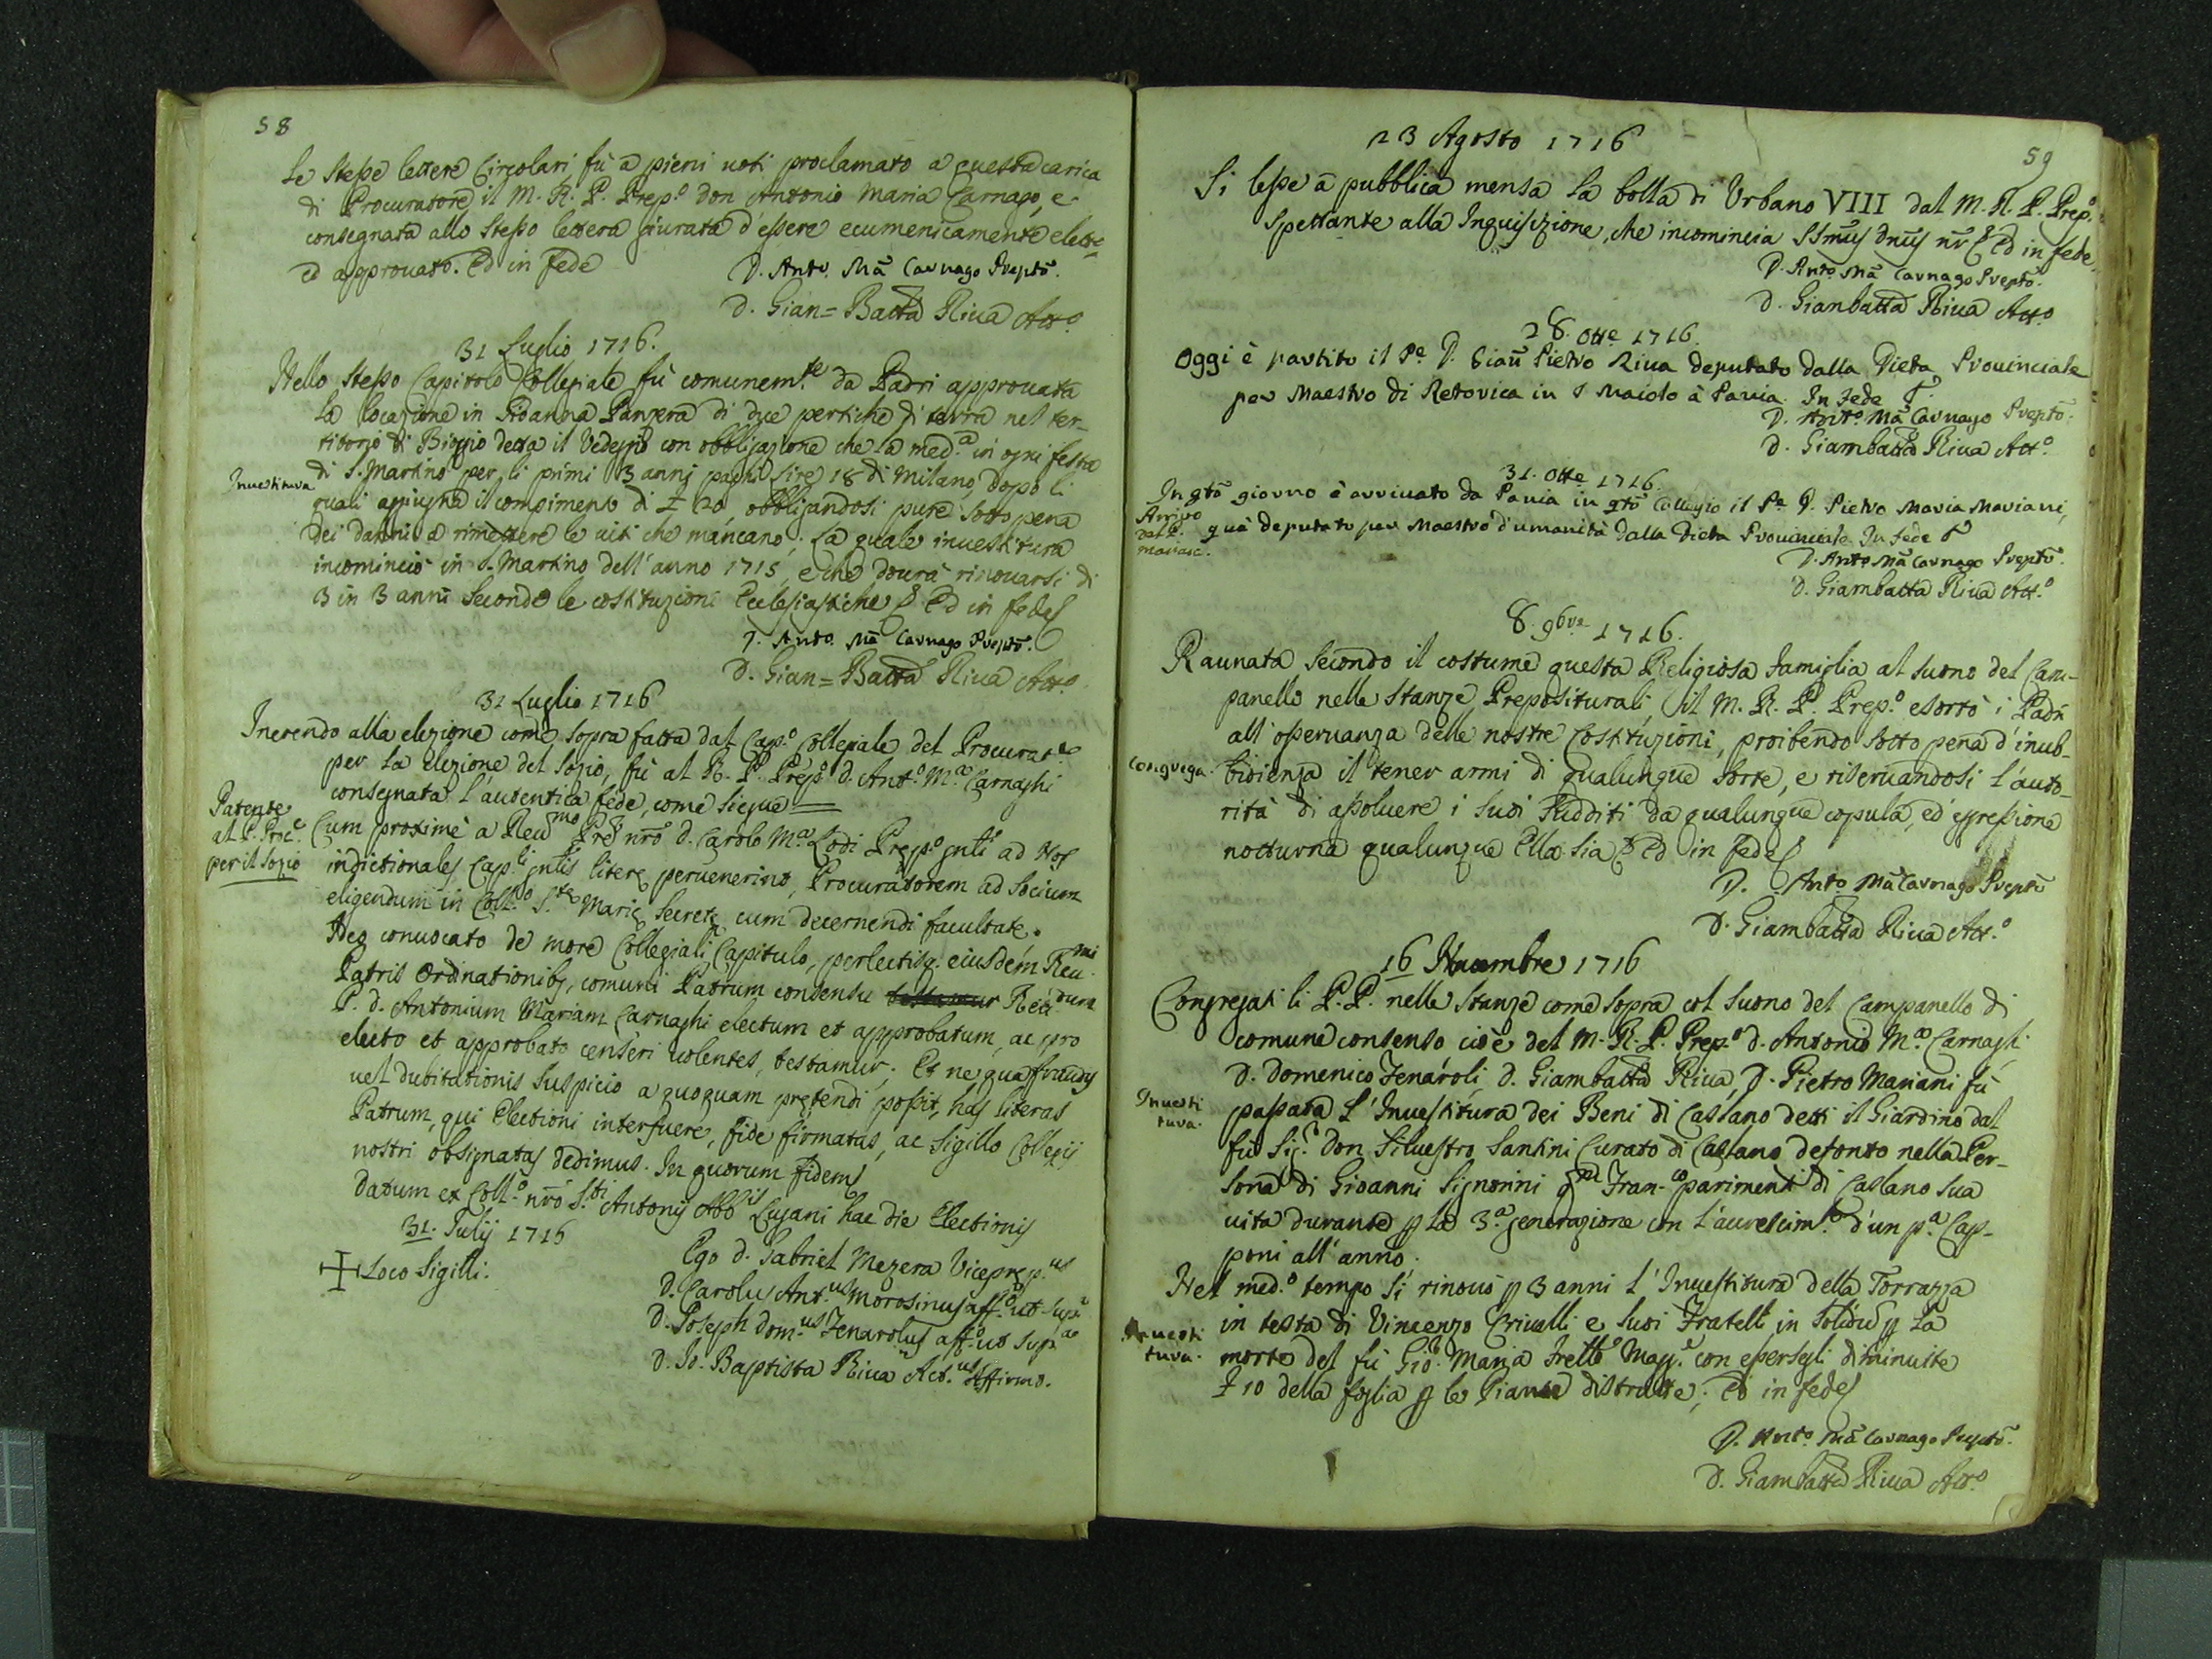 58
le stesse lettere Circolari, fù a pieni uoti proclamato a questa carica
di Procuratore il M. R. P. Prep.o Don Antonio Maria Carnago, e
consegnata allo stesso lettera giurata d'essere ecumenicamente elette
ed approuato. Ed in fede
D. Anto. Mã Carnago Preptõ.
D. Gian=Batta Riua Att.o
31 Luglio 1716.
Nello stesso Capitolo Collegiale fù comunem.te da Padri approuata
la locazione in Gioanna Panzera di due pertiche di terra nel ter-
ritorio di Biogio detta il Vedeggio con obbligazione che la med.a in ogni festa
di S. Martino per li primi 3 anni paghi lire 18 di Milano, dopo li
Inuestitura
quali aggiugna il compimento di £ 20, obbligandosi pure sotto pena
dei danni a rimettere le uiti che mancano; la quale inuestitura
incominciò in S. Martino dell'anno 1715, e che dourà rinouarsi di
3 in 3 anni secondo le costituzioni Ecclesiastiche &. Ed in fede
D. Anto. Mã Carnago Preptõ.
D. Gian=Batta Riua Att.o
31 Luglio 1716
Inerendo alla elezione come sopra fatta dal Cap.o Collegiale del Procurat.re
per la elezione del Sozio, fù al R. P. Prep.o D. Ant.o M.a Carnaghi
consegnata l'autentica fede, come siegue
Patente
al P. Proc.e
per il Sozio
Cum proximè a Reu.mo Prẽ nr̃o D. Carolo M.a Lodi Prep.o gnli ad Nos
indictionales Cap.li gnlis literę peruenerint, Procuratorem ad Socium
eligendum in Coll.o S.tę Marię Secretę cum decernendi facultate.
Nos conuocato de more Collegiali Capitulo, perlectisq. eiusdem Reu.mi
Patris Ordinationibs, comuni Patrum consensu testamur Reu.dum
P. D. Antonium Mariam Carnaghi electum et approbatum, ac pro
electo et approbato censeri uolentes, testamur; Et ne qua fraudis
uel dubitationis suspicio a quoquam prętendi possit, has literas
Patrum, qui Electioni interfuere, fide firmatas, ac sigillo Collegij
nostri obsignatas dedimus. In quorum fidem
Datum ex Coll.o nrõ S.ti Antonij Abb.is Lugani hac die Electionis
31. Julij 1716
Loco Sigilli.
Ego D. Gabriel Mezera Viceprep.us
D. Carolus Ant.us Morosinus aff.o ut supr.a
D. Joseph Dom.us Fenarolus aff.o ut supra
D. Jo. Baptista Riua Act.us Affirmo.
59
23 Agosto 1716
Si lesse a pubblica mensa la bolla di Urbano VIII dal M. R. P. Prep.o
spettante alla Inquisizione, che incomincia SSmus dnus nr̃ & Ed in fede
D. Anto Mã Carnago Preptõ.
D. Gianbatta Riua Att.o
28. Otte 1716.
Oggi è partito il Pe D. Giañ Pietro Riua deputato dalla Dieta Prouinciale
per Maestro di Retorica in S Maiolo à Pauia. In fede &
D. Anto Mã Carnago Preptõ.
D. Giambatta Riua Att.o
31. Otte 1716.
In qto giorno è arriuato da Pauia in qto Collegio il Pe D. Pietro Maria Mariani,
Arriuo
del P.
Mariani.
quà deputato per Maestro d'umanità dalla Dieta Prouinciale. In fede &
D. Anto Mã Carnago Preptõ.
D. Giambatta Riua Att.o
8. 9bre 1716.
Raunata secondo il costume questa Religiosa famiglia al suono del Cam-
panello nelle stanze Prepositurali, il M. R. P. Prep.o esortò i Padri
all'osseruanza delle nostre Costituzioni, proibendo sotto pena d'inub-
Congrega.
bidienza il tener armi di qualunque sorte, e riseruandosi l'auto-
rità di assoluere i suoi sudditi da qualunque copula, ed egressione
notturna qualunque Ella sia & Ed in fede
D. Anto Mã Carnago Preptõ
D. Giambatta Riua Att.o
16 Nouembre 1716
Congregati li P.P. nelle stanze come sopra col suono del Campanello di
comune consenso cioè del M. R. P. Prep.o D. Antonio M.a Carnaghi
D. Domenico Fenaroli, D. Giambatta Riua, D. Pietro Mariani fù
Inuesti
tura.
passata l'Inuestitura dei Beni di Caslano detti il Giardino dal
fu Sig.r Don Siluestro Santini Curato di Caslano defonto nella Per-
sona di Gioanni Signorini qm Fran.co parimenti di Caslano sua
uita durante p la 3.a generazione con l'acrescim.to d'un p.a Cap-
poni all'anno.
Nel med.o tempo si rinouò p 3 anni l'Inuestitura della Torrazza
Inuesti
tura.
in testa di Vincenzo Criuelli e suoi Fratelli in solidu p la
morte del fù Gio: Maria Frello Magg.e con essersegli diminuite
£ 10 della foglia p le Piante distrutte; Ed in fede
D. Anto Mã Carnago Preptõ.
D. Giambatta Riua Att.o